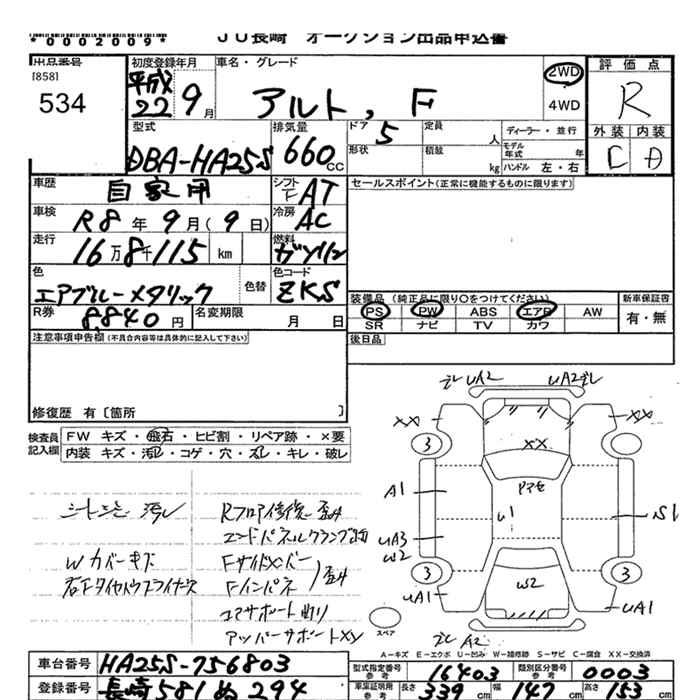 *0002009*
JU長崎 オークション出品申込書
出品番号
[858]
534
初度登録年月
平成22 9月
車名・グレード
アルト, F
2WD
4WD
評価点
R
外装 内装
C D
型式
DBA-HA25S
排気量
660cc
ドア 5
定員 人
形状
積載 kg
ディーラー・並行
モデル年式 年
ハンドル 左・右
車歴
自家用
シフト
F AT
車検
R8年9月(9日)
冷房
AC
走行
16万8千115 km
燃料
ガソリン
色
エアブルーメタリック
色替
色コード
ZKS
R券
8,840円
名変期限
月 日
セールスポイント(正常に機能するものに限ります)
装備品(純正品に限り○をつけてください)
PS PW ABS エアB AW
SR ナビ TV カワ
新車保証書
有・無
後日品
注意事項申告欄(不具合内容等は具体的に記入して下さい)
修復歴 有〔箇所 〕
検査員記入欄
FW キズ・飛石・ヒビ割・リペア跡・×要
内装 キズ・汚レ・コゲ・穴・スレ・キレ・破レ
Wカバーキズ
Rフロア修復歪み
Fサイドメンバー
Fインパネ 歪み
UA2 UA2
XX XX
3
XX
A1
U1
S1
UA3
W2
3 3
W2
UA1 UA1
A2
スペア
A−キズ E−エクボ U−凹み W−補修跡 S−サビ C−腐食 XX−交換済
車台番号
HA25S-756803
型式指定番号 参考
16403
類別区分番号 参考
0003
登録番号
長崎581ぬ294
車庫証明用 参考
長さ 339cm 幅 147cm 高さ 163cm